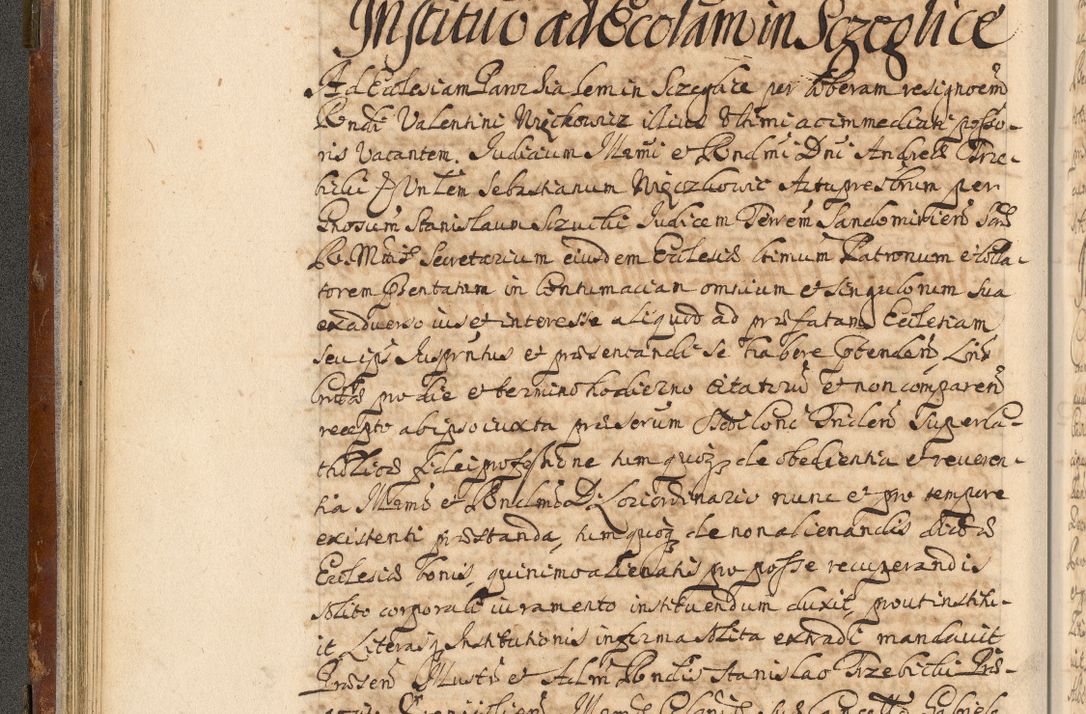 Institutio ad Eccłam in Sczeglice
Ad Ecclesiam Parochialem in Sczeglice per liberam resignoēm
Rondi Valentini Nięckowicz illius Vltimi ac immediati posso-
ris Vacantem. Judicium Illmi et Rondmi Dni Andreæ Trze-
bicki Sebastianum Nięczkowic Artium per
Gnosum Stanislaum Sczucki Judicem Terrem Sandomirien Sac
R. Mttis Secretarium eiusdem Ecclesiæ ltimum Patronum et colla-
torem pñtentatum in Contumaciam omnium et singulorum sua
ex aduerso ius et interesse aliquod ad præfatam Ecclesiam
seu ips Juspñtus et præsentandi se habere ptenden
pro die et termino hodierno citatorū et non comparen
recepto ab ipso iuxta Triden super Ca-
tholicæ fidei professione tum quoq de obedientia et reueren-
tia Illmo et Rondmo D. Loci ordinario nunc et pro tempore
existenti præstanda, tum quoq de non alienandis dictæ
Ecclesiæ bonis, quinimo alienatis pro posse recuperandis
solito corporali iuramento instituendum duxit, prout institu-
it Literasq Institutionis in forma solita extradi mandauit
Præsen Illustri et Adm Rondis Stanislao Trzebicki Præ-